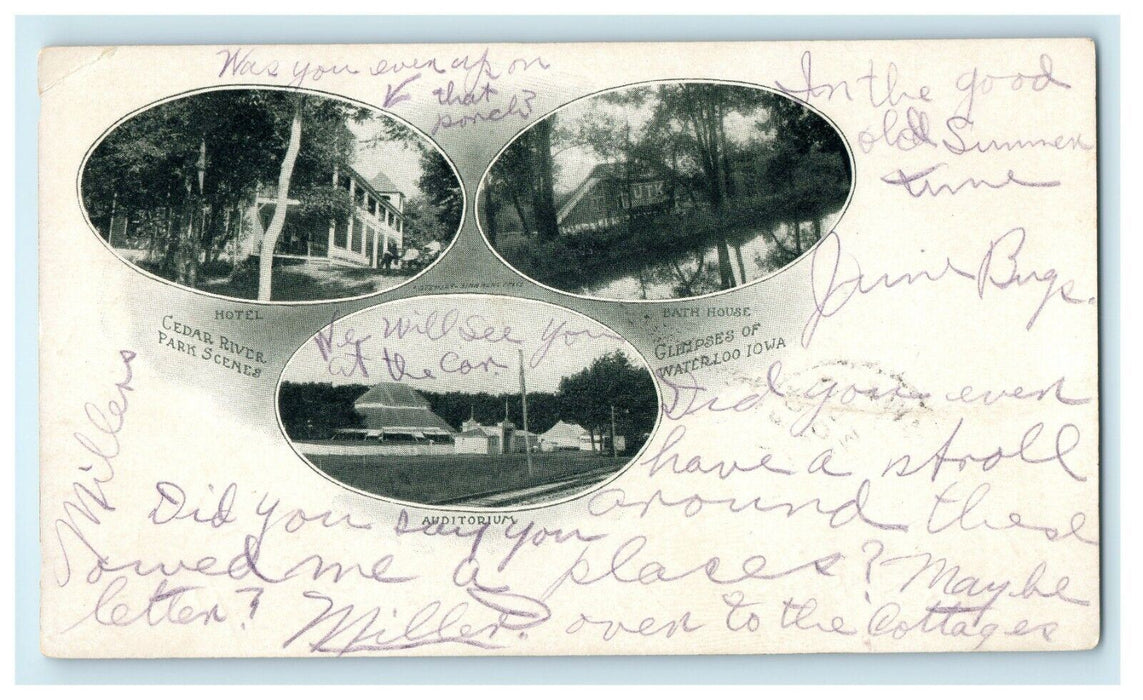 Was you ever up on
that
porch?
In the good
old Summer
time
HOTEL
CEDAR RIVER
PARK SCENES
BATH HOUSE
GLIMPSES OF
WATERLOO IOWA
We will See you
at the car.
AUDITORIUM
Did you ever
have a stroll
around these
places? Maybe
over to the Cottages
Did you say you
owed me a
letter? Miller.
Millers